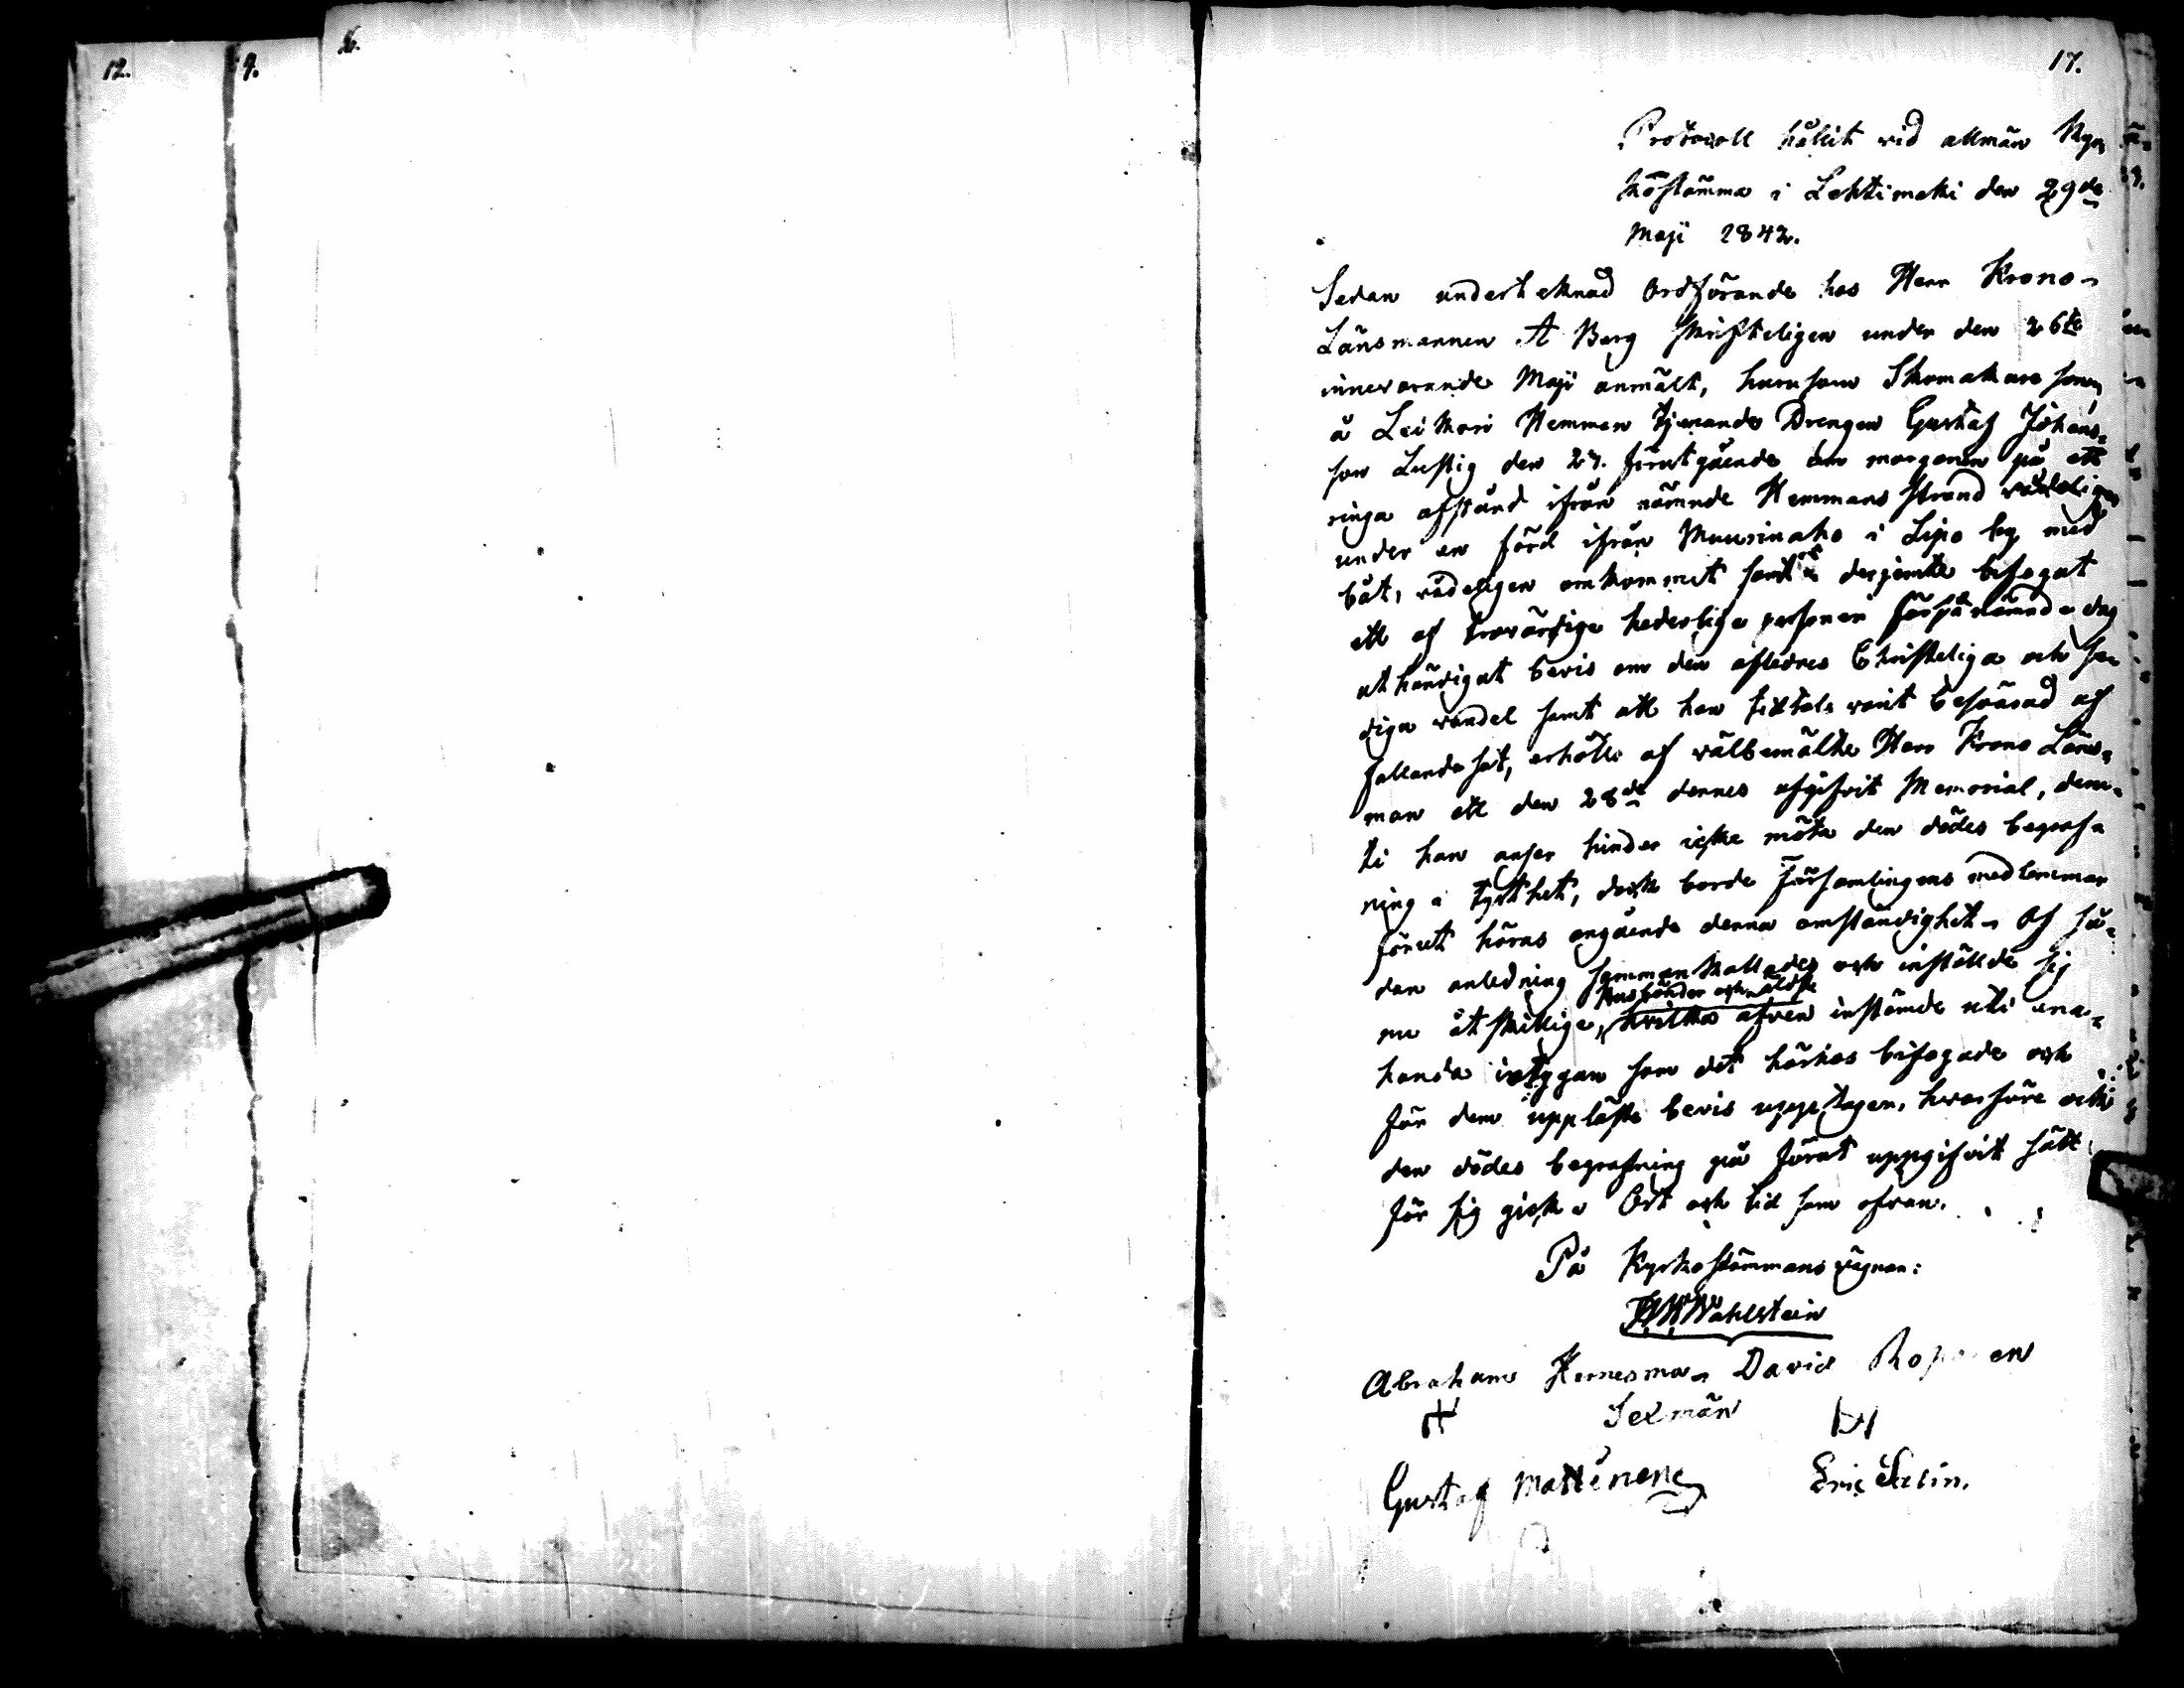 12.
9.
17.
Protocoll hållit vid allmän Kyr
kostämma i Lehtimeki den 29de
Maji 1842.
Sedan underteknad Ordförande hos Herr Krono-
Länsmannen A Berg skrifteligen under den 26te
innevarande Maji anmält, hurusom Skomakare sonen,
å Leikari Hemman tjenande Drengen Gustaf Johans-
son Lustig den 27. förutgående om morgonen på ett
ringa afstånd ifrån nämnde Hemmans strand
under en förd ifrån Muurinaho i Lipo by med
båt, vådeligen omkommit samt derjemte bifogat
ett af trovärdige hederlige personer förspånämnde dag
uthändigat bevis om den aflednes Christeliga och se-
diga vandel samt att han tidtals varit besvärad af
fallandesot, erhölls af välbemälte Herr Krono Läns-
man ett den 28de dennes afgifvit Memorial, deru-
ti han anser hinder icke möta den dödes begrafn
ning i tysthet, dock borde Församlingens medlemmar
förut höras angående denna omständighet. Af så-
dan anledning sammankallades och inställde sig
Husbönder och äldste
nu åtskillige, hvilka äfven instämde uti ena-
handa intygan som det härhos bifogade och
för dem uppläste bevis upptager, hvarföre och
den dödes begrafning på förut uppgifvit sätt
för sig gick. Ort och tid som ofvan.
På Kyrkostämmans vägnar:
Wahlstein
Abraham Hernesma David
Sexmän
Gustaf Mattinen Eric